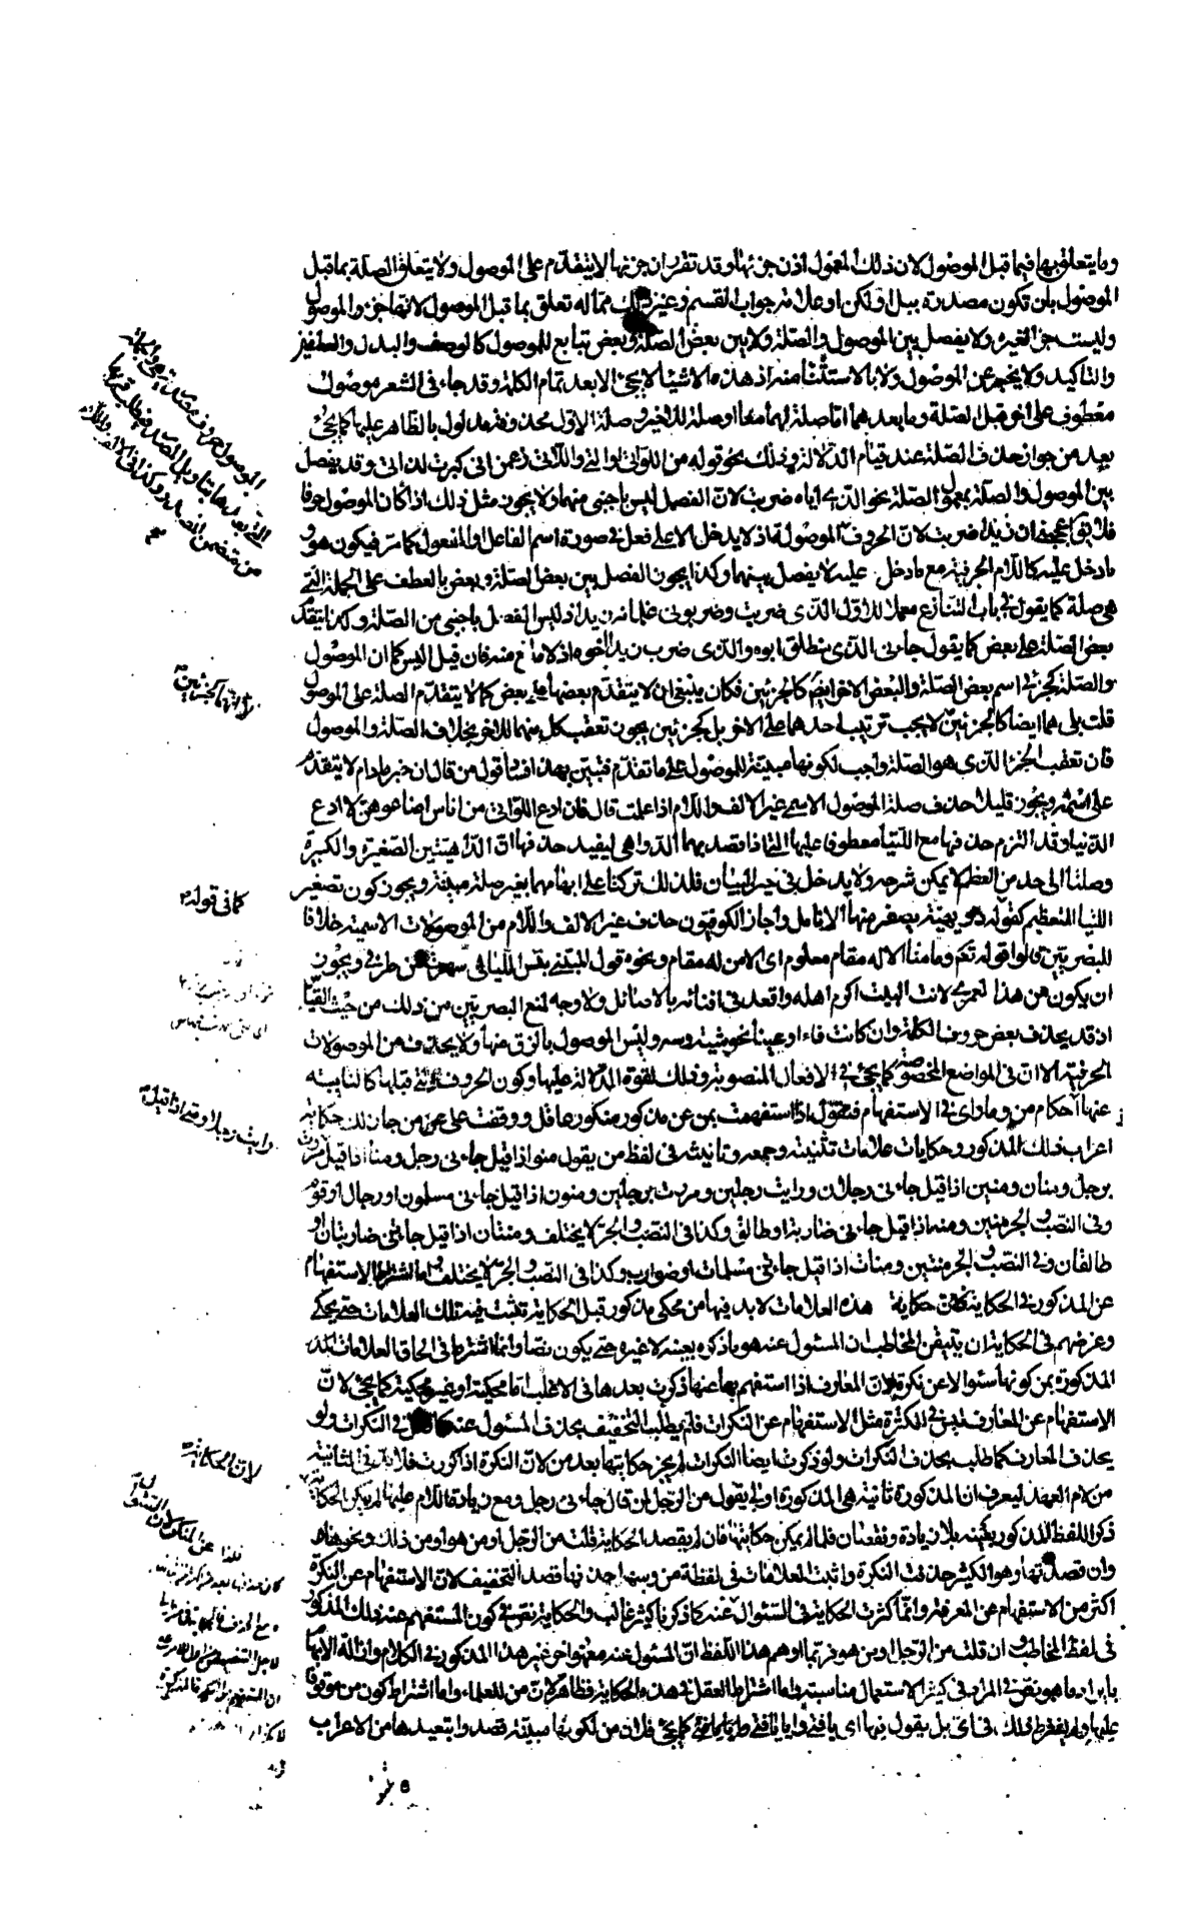 وما يتعلق بها فيما قبل الموصول لان ذلك المعمول اذن جزئها وقد تقرر ان جزئها لا يتقدم على الموصول ولا يتعلق الصلة بما قبل
الموصول بان تكون مصدرة ببل او لكن او علامة جواب القسم وغير ذلك مما له تعلق بما قبل الموصول لانها جزء الموصول
وليست جزء الغيره ولا يفصل بين الموصول والصلة ولا بين بعض الصلة وبعض بتابع للموصول كالوصف والبدل والعطف
والتاكيد ولا يخبر عن الموصول ولا بالاستثناء منه اذ هذه الاشياء لا يجئ الا بعد تمام الكلمة وقد جاء فى الشعر موصول
معطوف على اخر قبل الصلة وما بعدهما اما صلة لهما معا او صلة للاخير وصلة الاول محذوفة مدلول بالظاهر عليها كما يجئ
بعد من جواز حذف الصلة عند قيام الدلالة وذلك نحو قوله من اللواتى والتى واللاتى زعمن انى كبرت لداتى وقد يفصل
بين الموصول والصلة بمعمول الصلة نحو الذى اياه ضربت لان الفصل ليس باجنبى منهما ولا يجوز مثل ذلك اذا كان الموصول حرفا
فلا يق اعجبنى ان زيدا ضربت لان الحروف الموصولة اذ لا يدخل الا على فعل فى صورة اسم الفاعل او المفعول كما مر فيكون هو و
ما دخل عليه كاللام الحرفية مع ما دخل عليه لا يفصل بينهما وكذا يجوز الفصل بين بعض الصلة وبعض بالعطف على الجملة التى
هى صلة كما يقول فى باب التنازع معملا للاول الذى ضربت وضربونى غلمانه زيد اذ ليس الفصل باجنبى من الصلة وكذا يتقدم
بعض الصلة على بعض كما يقول جاءنى الذى منطلق ابوه والذى ضرب زيدا اخوه اذ لا مانع منه فان قيل اليس كما ان الموصول
والصلة كجزئى اسم بعض الصلة والبعض الاخر ايضا كالجزئين فكان ينبغى ان لا يتقدم بعضها على بعض كما لا يتقدم الصلة على الموصول
قلت بلى هما ايضا كالجزئين لا يجب ترتيب احدهما على الاخر بل كجزئين يجوز تعقب كل منهما للاخر بخلاف الصلة والموصول
فان تعقب الجزء الذى هو الصلة واجب لكونها مبينة للموصول على ما تقدم فتبين بهذا فساد قول من قال ان خبر مادام لا يتقدم
على اسمه ويجوز قليلا حذف صلة الموصول الاسمى غير الالف واللام اذا علمت قال فان ادع اللواتى من اناس اضاعوهن لا ادع
الذينا وقد التزم حذفها مع اللتيا معطوفا عليها التى اذا قصد بهما الدواهى ليفيد حذفها ان الداهيتين الصغيرة والكبيرة
وصلتا الى حد من العظم لا يمكن شرحه ولا يدخل فى حيز البيان فلذلك تركتا على ابهامهما بغير صلة مبينة ويجوز كون تصغير
اللتيا للتعظيم كقوله دويهية يصفر منها الانامل واجاز الكوفيون حذف غير الالف واللام من الموصولات الاسمية خلافا
للبصريين قالوا قوله تعم وما منا الا له مقام معلوم اى الا من له مقام ونحوه قول المتنبى بئس الليالى سهرت من طربى ويجوز
ان يكون من هذا لعمرى لانت البيت اكرم اهله واقعد فى افنائه بالاصائل ولا وجه لمنع البصريين من ذلك من حيث القياس
اذ قد يحذف بعض حروف الكلمة وان كانت فاء او عينا نحو شية وسه وليس الموصول بالزق منها ولا يحذف من الموصولات
الحرفية الا ان فى المواضع المخصوصة كما يجئ فى الافعال المنصوبة وذلك لقوة الدلالة عليها وكون الحروف التى قبلها كالنايبة
عنها احكام من وما واى فى الاستفهام فنقول اذا استفهمت بمن عن مذكور منكور عاقل ووقفت على من جاز لك حكاية
اعراب ذلك المذكور وحكايات علامات تثنيته وجمعه وتانيثه فى لفظ من يقول منو اذا قيل جاءنى رجل ومنا اذا قيل مررت
برجل ومنان ومنين اذا قيل جاءنى رجلان ورايت رجلين ومررت برجلين ومنون اذا قيل جاءنى مسلمون او رجال او قوم
وفى النصب والجر منين ومنه اذا قيل جاءنى ضاربة او طالق وكذا فى النصب والجر لا يختلف ومنتان اذا قيل جاءتنى ضاربتان او
طالقان وفى النصب والجر منتين ومنات اذا قيل جاءنى مسلمات او ضوارب وكذا فى النصب والجر لا يختلف واما اشتراط الاستفهام
عن المذكور فى الحكاية فلان حكاية هذه العلامات لابد فيها من محكى مذكور قبل الحكاية تثبت فيه تلك العلامات حتى يحكى
وغرضهم فى الحكاية ان يتيقن المخاطب ان المسئول عنه هو ما ذكره بعينه لا غيره حتى يكون نصا وانما اشترط فى الحاق العلامات
المذكورة بمن كونها سئوالا عن نكرة لان المعارف اذا استفهم بها عنها ذكرت بعدها فى الاغلب اما محكية او غير محكية كما يجئ لان
الاستفهام عن المعارف ليس فى الكثرة مثل الاستفهام عن النكرات فلم يطلب التخفيف بحذف المسئول عنه كما فى النكرات ولو
بحذف المعارف كما طلب بحذف النكرات ولو ذكرت ايضا النكرات لم يجز حكايتها بعد من لان النكرة اذا كررت فلابد فى الثانية
من لام العهد ليعرف ان المذكورة ثانية هى المذكورة اولا يقول من الرجل لمن قال جاءنى رجل ومع زيادة اللام عليها لم يكن الحكاية
ذكر اللفظ المذكور بعينه بلا زيادة ونقصان فلما لم يمكن حكايتها فان لم يقصد الحكاية قلت من الرجل او من هو او من ذلك ونحوها
وان قصدتها وهو الكثير حذفت النكرة واثبت العلامات فى لفظة من وسهل حذفها قصد التخفيف لان الاستفهام عن النكرة
اكثر من الاستفهام عن المعرفة وانما كثرت الحكاية فى السئوال عنه كما ذكرنا كثير غالب والحكاية نص فى كون المستفهم عنه ذلك المذكور
فى لفظ المخاطب وان قلت من الرجل او من هو فربما اوهم هذا اللفظ ان المسئول عنه معهود اخر غير هذا المذكور فى الكلام وازالة الابهام
بايراد ما هو نص فى المراد فى كثير الاستعمال مناسبة واما اشتراط العقل فى هذه الحكاية فظاهر لان من للعلماء واما اشتراط كون من موقوفا
عليها ولم يشترط ذلك فى اى بل يقول فيها اى يا فتى وايا يا فتى واى يا فتى كما يجئ فلان من لكونها مبنية قصدوا تبعيدها من الاعراب
لانها كجزئين
كما فى قوله
رايت رجلا ومنى اذا قيل
لان الحكاية